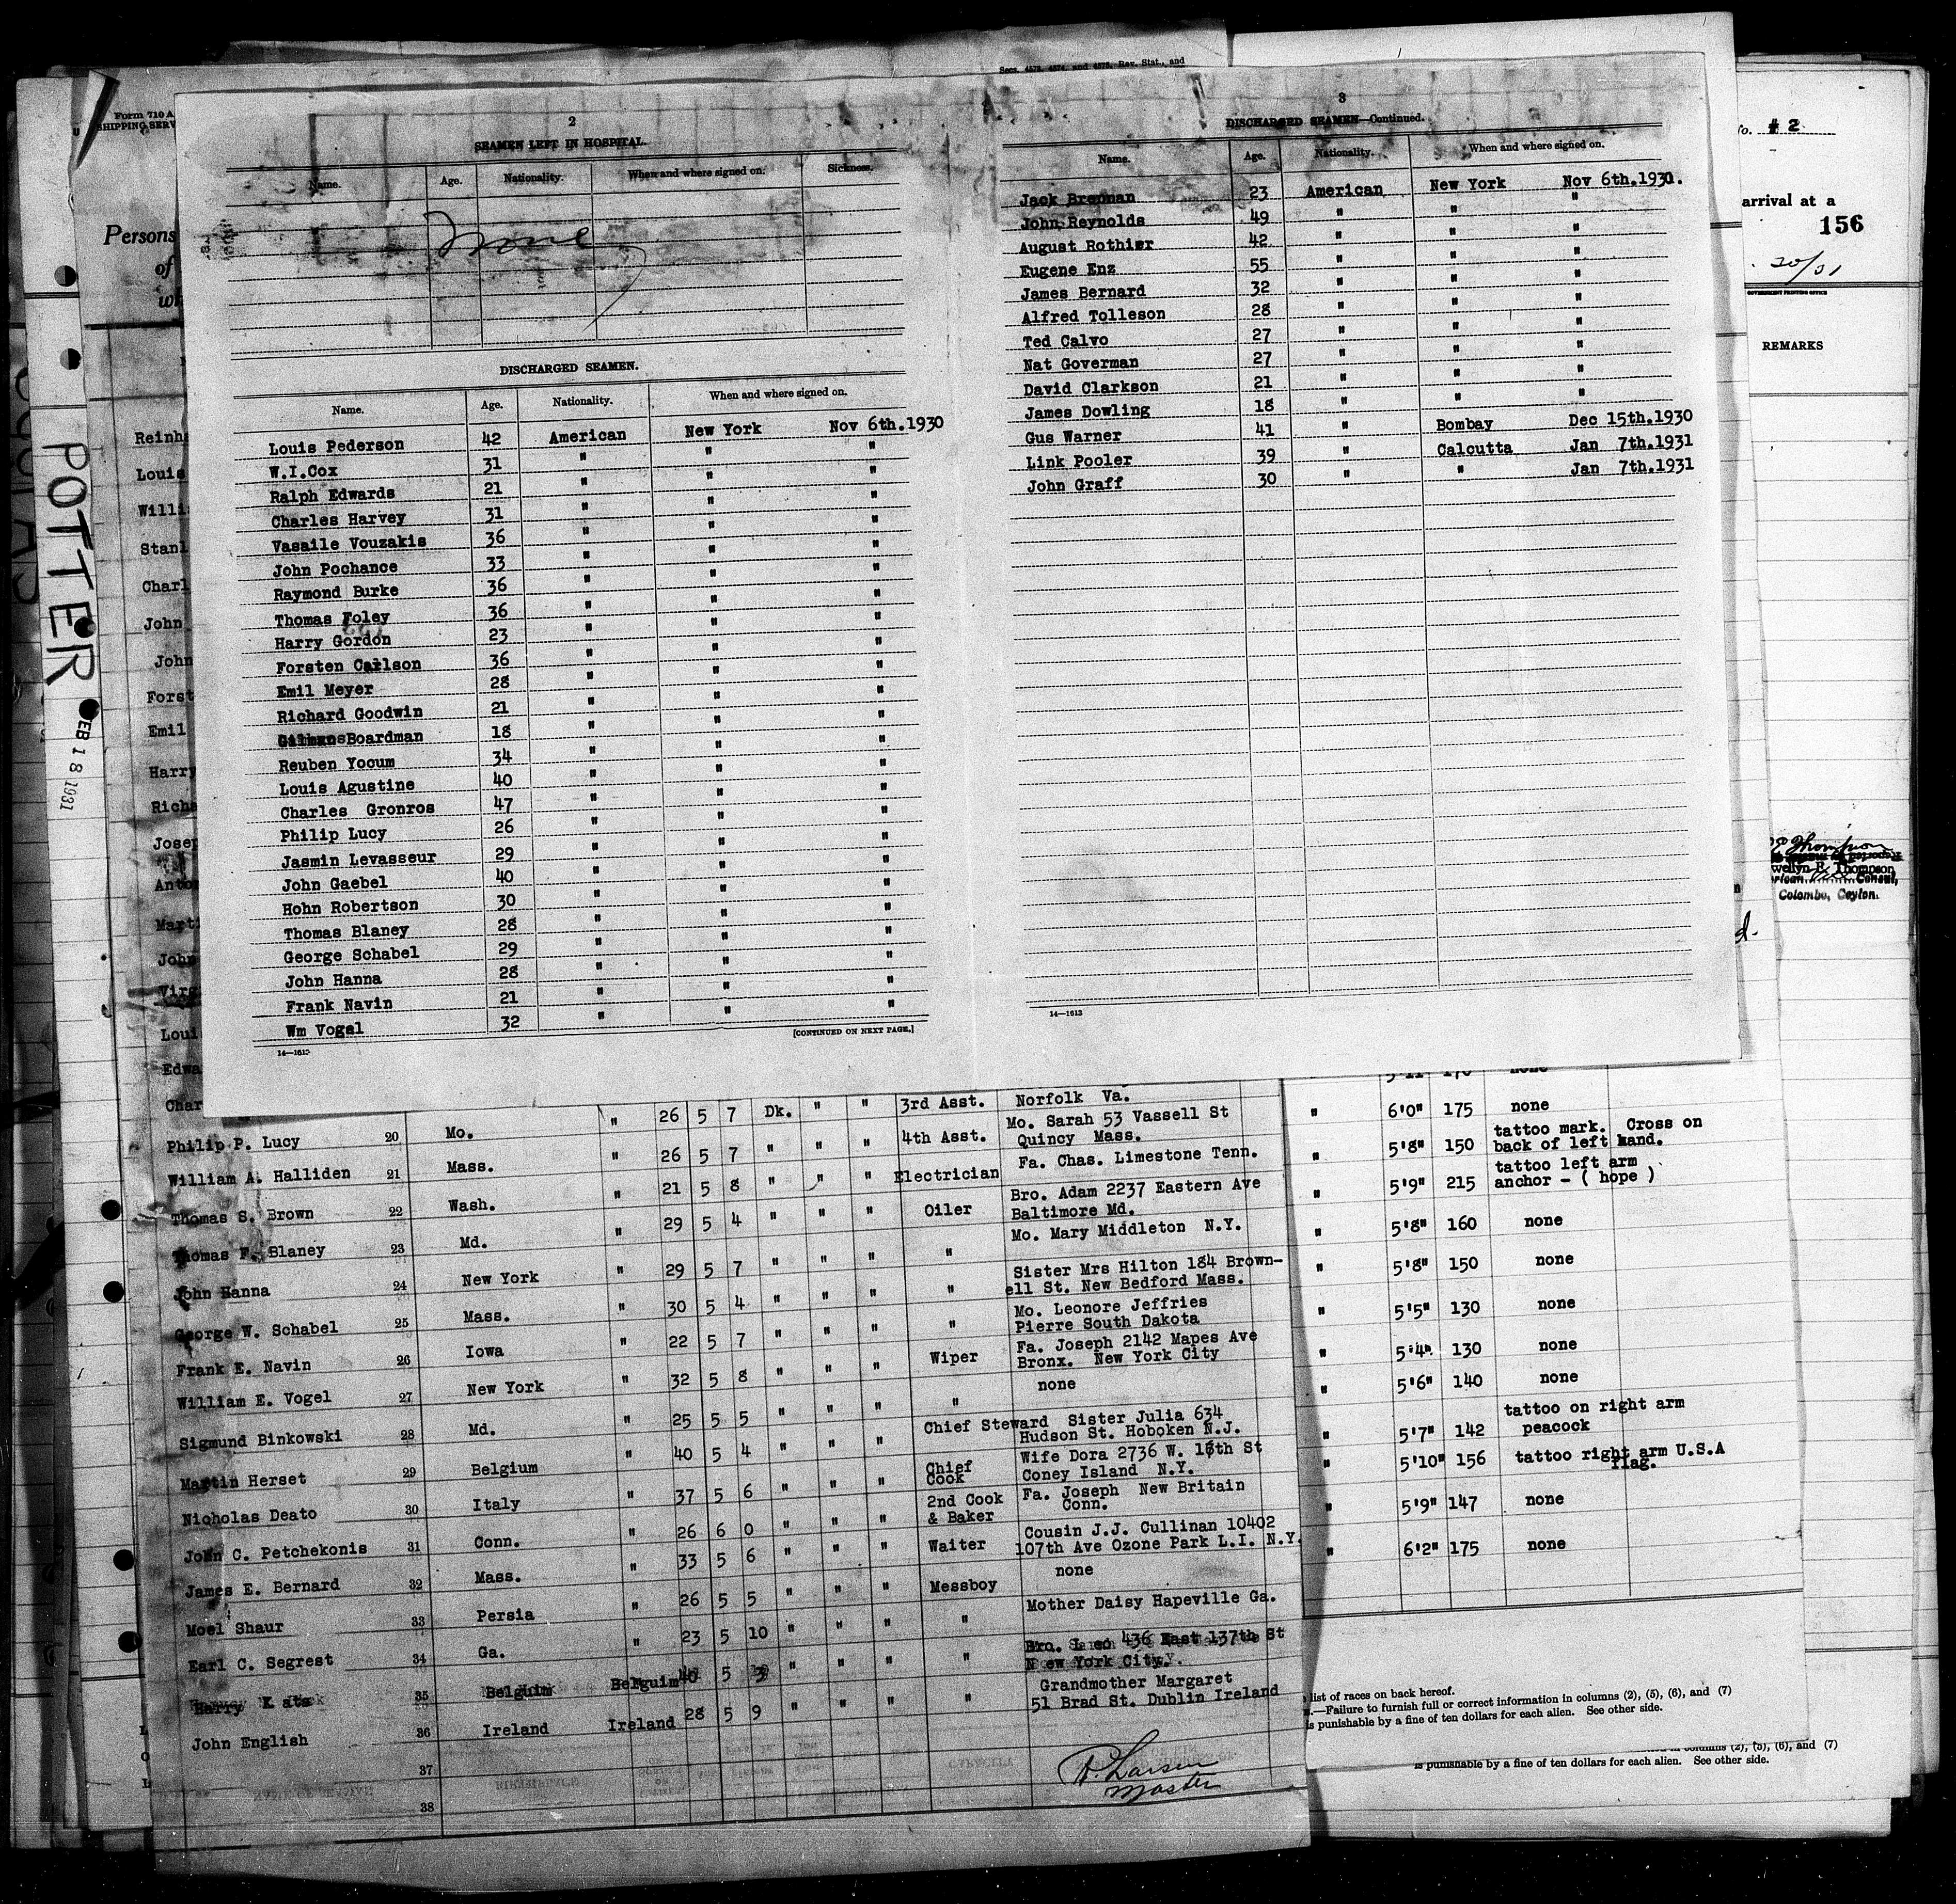 Secs. 4573, 4574, and 4575, Rev. Stat., and
Form 710 A
SHIPPING SERV
Persons
of
POTTER
FEB 18 1931
2
SEAMEN LEFT IN HOSPITAL.
Name. Age. Nationality. When and where signed on. Sickness.
None
DISCHARGED SEAMEN.
Name. Age. Nationality. When and where signed on.
Louis Pederson 42 American New York Nov 6th.1930
W.I.Cox 31 " " "
Ralph Edwards 21 " " "
Charles Harvey 31 " " "
Vasaile Vouzakis 36 " " "
John Pochance 33 " " "
Raymond Burke 36 " " "
Thomas Foley 36 " " "
Harry Gordon 23 " " "
Forsten Carlson 36 " " "
Emil Meyer 28 " " "
Richard Goodwin 21 " " "
Boardman 18 " " "
Reuben Yocum 34 " " "
Louis Agustine 40 " " "
Charles Gronros 47 " " "
Philip Lucy 26 " " "
Jasmin Levasseur 29 " " "
John Gaebel 40 " " "
Hohn Robertson 30 " " "
Thomas Blaney 28 " " "
George Schabel 29 " " "
John Hanna 28 " " "
Frank Navin 21 " " "
Wm Vogel 32 " " "
[CONTINUED ON NEXT PAGE.]
14—1613
3
DISCHARGED SEAMEN—Continued.
Name. Age. Nationality. When and where signed on.
Jack Brennan 23 American New York Nov 6th.1930.
John Reynolds 49 " " "
August Rothier 42 " " "
Eugene Enz 55 " " "
James Bernard 32 " " "
Alfred Tolleson 28 " " "
Ted Calvo 27 " " "
Nat Goverman 27 " " "
David Clarkson 21 " " "
James Dowling 18 " " "
Gus Warner 41 " Bombay Dec 15th.1930
Link Pooler 39 " Calcutta Jan 7th.1931
John Graff 30 " " Jan 7th.1931
14—1613
No. # 2
arrival at a
156
20/31
GOVERNMENT PRINTING OFFICE
REMARKS
Thompson
wellyn E. Thompson
Consul,
Colombo, Ceylon.
Reinh
Louis
Willi
Stanl
Charl
John
John
Forst
Emil
Harry
Richa
Josep
Anton
Marti
John
Virg
Loui
Edwa
Char
3rd Asst. Norfolk Va.
Philip P. Lucy 20 Mo. " 26 5 7 Dk. " " 4th Asst. Mo. Sarah 53 Vassell St
Quincy Mass.
William A. Halliden 21 Mass. " 26 5 7 " " " Electrician Fa. Chas. Limestone Tenn.
Thomas S. Brown 22 Wash. " 21 5 8 " " " Oiler Bro. Adam 2237 Eastern Ave
Baltimore Md.
Thomas F. Blaney 23 Md. " 29 5 4 " " " " Mo. Mary Middleton N.Y.
John Hanna 24 New York " 29 5 7 " " " " Sister Mrs Hilton 184 Brown-
ell St. New Bedford Mass.
George W. Schabel 25 Mass. " 30 5 4 " " " " Mo. Leonore Jeffries
Pierre South Dakota
Frank E. Navin 26 Iowa " 22 5 7 " " " Wiper Fa. Joseph 2142 Mapes Ave
Bronx. New York City
William E. Vogel 27 New York " 32 5 8 " " " " none
Sigmund Binkowski 28 Md. " 25 5 5 " " " Chief Steward Sister Julia 634
Hudson St. Hoboken N.J.
Martin Herset 29 Belgium " 40 5 4 " " " Chief Cook Wife Dora 2736 W. 16th St
Coney Island N.Y.
Nicholas Deato 30 Italy " 37 5 6 " " " 2nd Cook & Baker Fa. Joseph New Britain
Conn.
John C. Petchekonis 31 Conn. " 26 6 0 " " " Waiter Cousin J.J. Cullinan 10402
107th Ave Ozone Park L.I. N.Y.
James E. Bernard 32 Mass. " 33 5 6 " " " Messboy none
Moel Shaur 33 Persia " 26 5 5 " " " " Mother Daisy Hapeville Ga.
Earl C. Segrest 34 Ga. " 23 5 10 " " " " 436 East 137th St
New York City.
Harry Kats 35 Belguim Belguim 5 " " " " Grandmother Margaret
51 Brad St. Dublin Ireland
John English 36 Ireland Ireland 28 5 9 " " "
37
38
R. Larsen
Master
5'11" 170 none
" 6'0" 175 none
" 5'8" 150 tattoo mark. Cross on
back of left hand.
" 5'9" 215 tattoo left arm
anchor - ( hope )
" 5'8" 160 none
" 5'8" 150 none
" 5'5" 130 none
" 5'4" 130 none
" 5'6" 140 none
" 5'7" 142 tattoo on right arm
peacock
" 5'10" 156 tattoo right arm U.S.A
flag.
" 5'9" 147 none
" 6'2" 175 none
list of races on back hereof.
.—Failure to furnish full or correct information in columns (2), (5), (6), and (7)
is punishable by a fine of ten dollars for each alien. See other side.
columns (2), (5), (6), and (7)
is punishable by a fine of ten dollars for each alien. See other side.